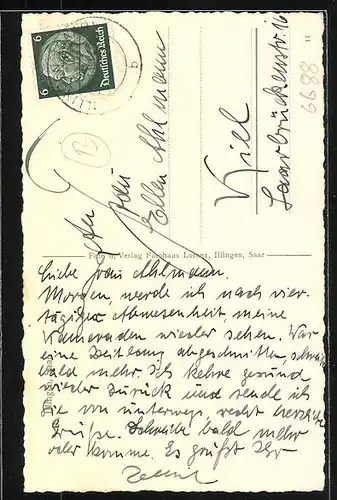 6 Deutsches Reich 6
B
An Frau
Ellen Ahlmann
Kiel
Saarbrückenstr. 16
6688
Foto u. Verlag Fotohaus Lorenz, Illingen, Saar
Liebe Frau Ahlmann.
Morgen, werde ich nach vier-
tägiger Abwesenheit meine
Kameraden wieder sehen. War
eine Zeitlang abgeschnitten, schreibe
bald mehr. Ich kehre gesund
wieder zurück und sende ich
Sie von unterwegs, recht herzliche
Grüße. Schreibe bald mehr
oder komme. Es grüßt Ihr